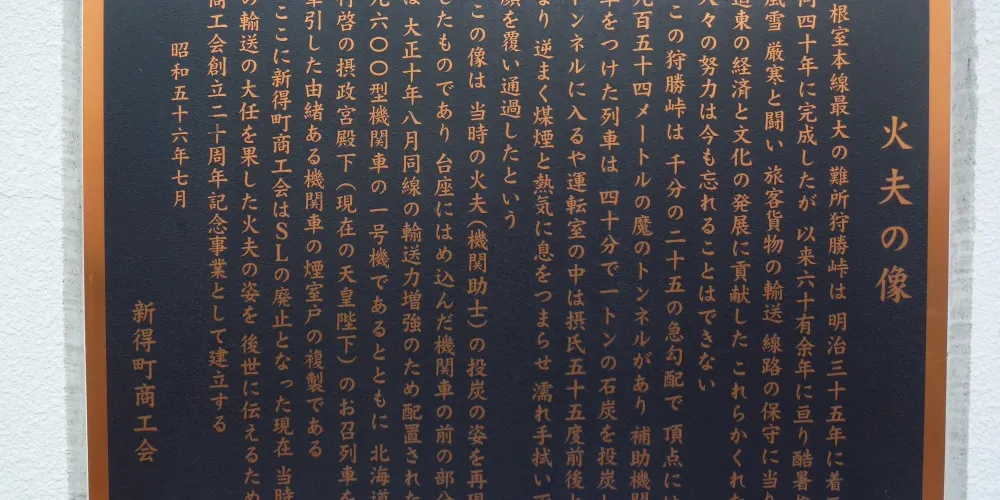 火夫の像
根室本線最大の難所狩勝峠は 明治三十五年に着
四十年に完成したが 以来六十有余年に亘り酷暑
風雪 厳寒と闘い 旅客貨物の輸送 線路の保守に当り
道東の経済と文化の発展に貢献した これらかくれた
人々の努力は今も忘れることはできない
この狩勝峠は 千分の二十五の急勾配で 頂点には
九百五十四メートルの魔のトンネルがあり 補助機関
車をつけた列車は 四十分で一トンの石炭を投炭し
トンネルに入るや運転室の中は摂氏五十五度前後と
なり 逆まく煤煙と熱気に息をつまらせ 濡れ手拭い
顔を覆い通過したという
この像は 当時の火夫(機関助士)の投炭の姿を再現
したものであり 台座にはめ込んだ機関車の前の部分
は 大正十年八月同線の輸送力増強のため配置された
九六〇〇型機関車の一号機であるとともに 北海道
行啓の摂政宮殿下(現在の天皇陛下)のお召列車を
牽引した由緒ある機関車の煙室戸の複製である
ここに新得町商工会はSLの廃止となった現在 当時
の輸送の大任を果した火夫の姿を 後世に伝えるため
商工会創立二十周年記念事業として建立する
昭和五十六年七月
新得町商工会